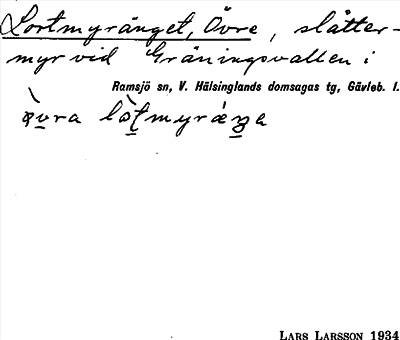 Lortmyränget, Övre, slåtter-
myr vid Gräningsvallen i
Ramsjö sn, V. Hälsinglands domsagas tg, Gävleb. l.
LARS LARSSON 1934